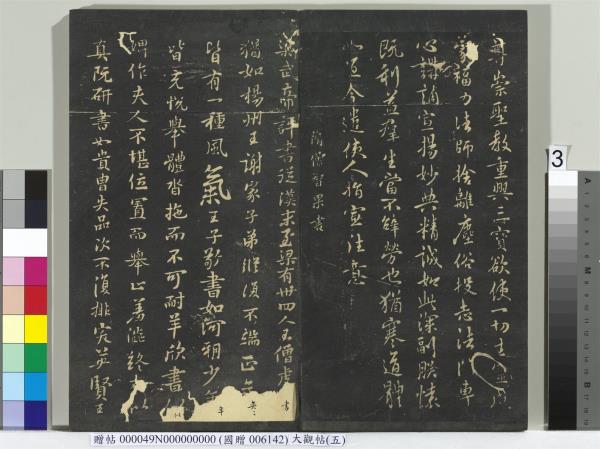 尊崇聖教重興三寶欲使一切生
蒙福力法師捨離塵俗投志法門專
心講誦宣揚妙典精誠如此深副朕懷
既利益羣生當不辭勞也猶寒道體
如宜今遣使人指宣往意
隋僧智果書
梁武帝評書從漢末至梁有卅四人王僧虔
猶如揚州王謝家子弟縱復不端正
皆有一種風氣王子敬書如河朔少
皆充悅舉體沓拖而不可耐羊欣書
婢作夫人不堪位置而舉止羞澀終
真阮研書如貴曹失品次不復排突英賢王
書
年
3
贈帖 000049N000000000 (國贈 006142) 大觀帖(五)